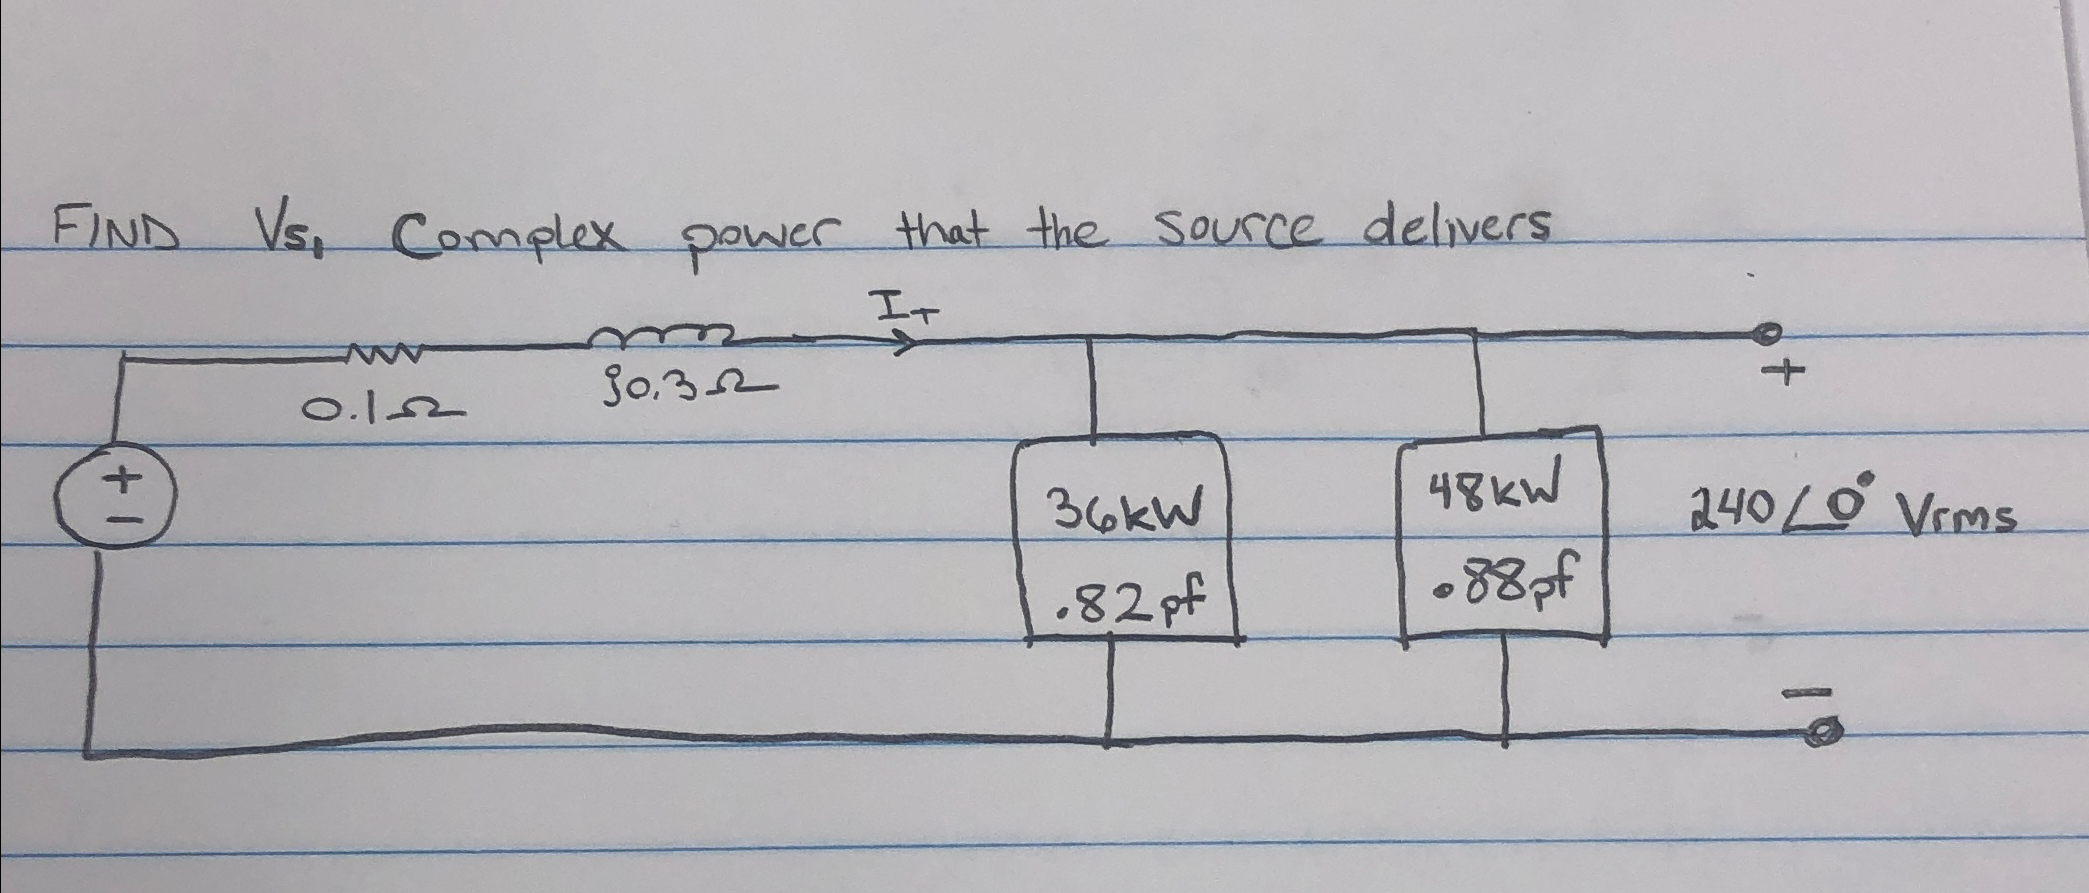 FIND Vs, Complex power that the source delivers
IT
0.1Ω
j0.3Ω
+
+
−
36kW
.82pf
48kW
.88pf
240∠0° Vrms
−